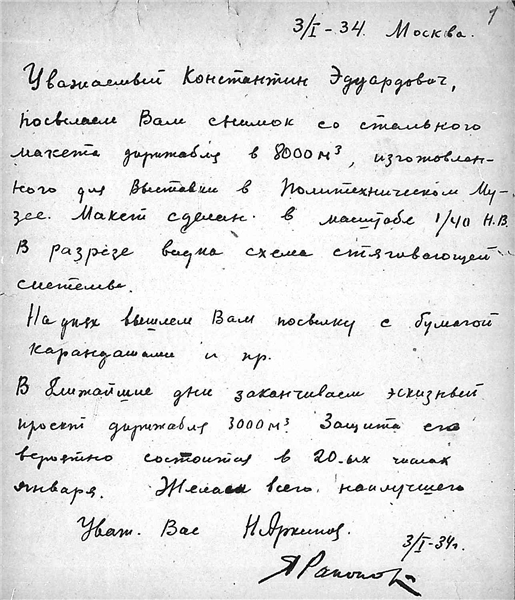 1
3/I-34. Москва.
Уважаемый Константин Эдуардович,
посылаем Вам снимок со стального
макета дирижабля в 8000 м³, изготовлен-
ного для Выставки в Политехническом Му-
зее. Макет сделан в масштабе 1/40 Н.В.
В разрезе видна схема стягивающей
системы.
На днях вышлем Вам посылку с бумагой
карандашами и пр.
В ближайшие дни заканчиваем эскизный
проект дирижабля 3000 м³. Защита его
вероятно состоится в 20-ых числах
января. Желаем всего наилучшего
Уваж. Вас Н. Архипов.
3/I-34г.
Я Рапопорт